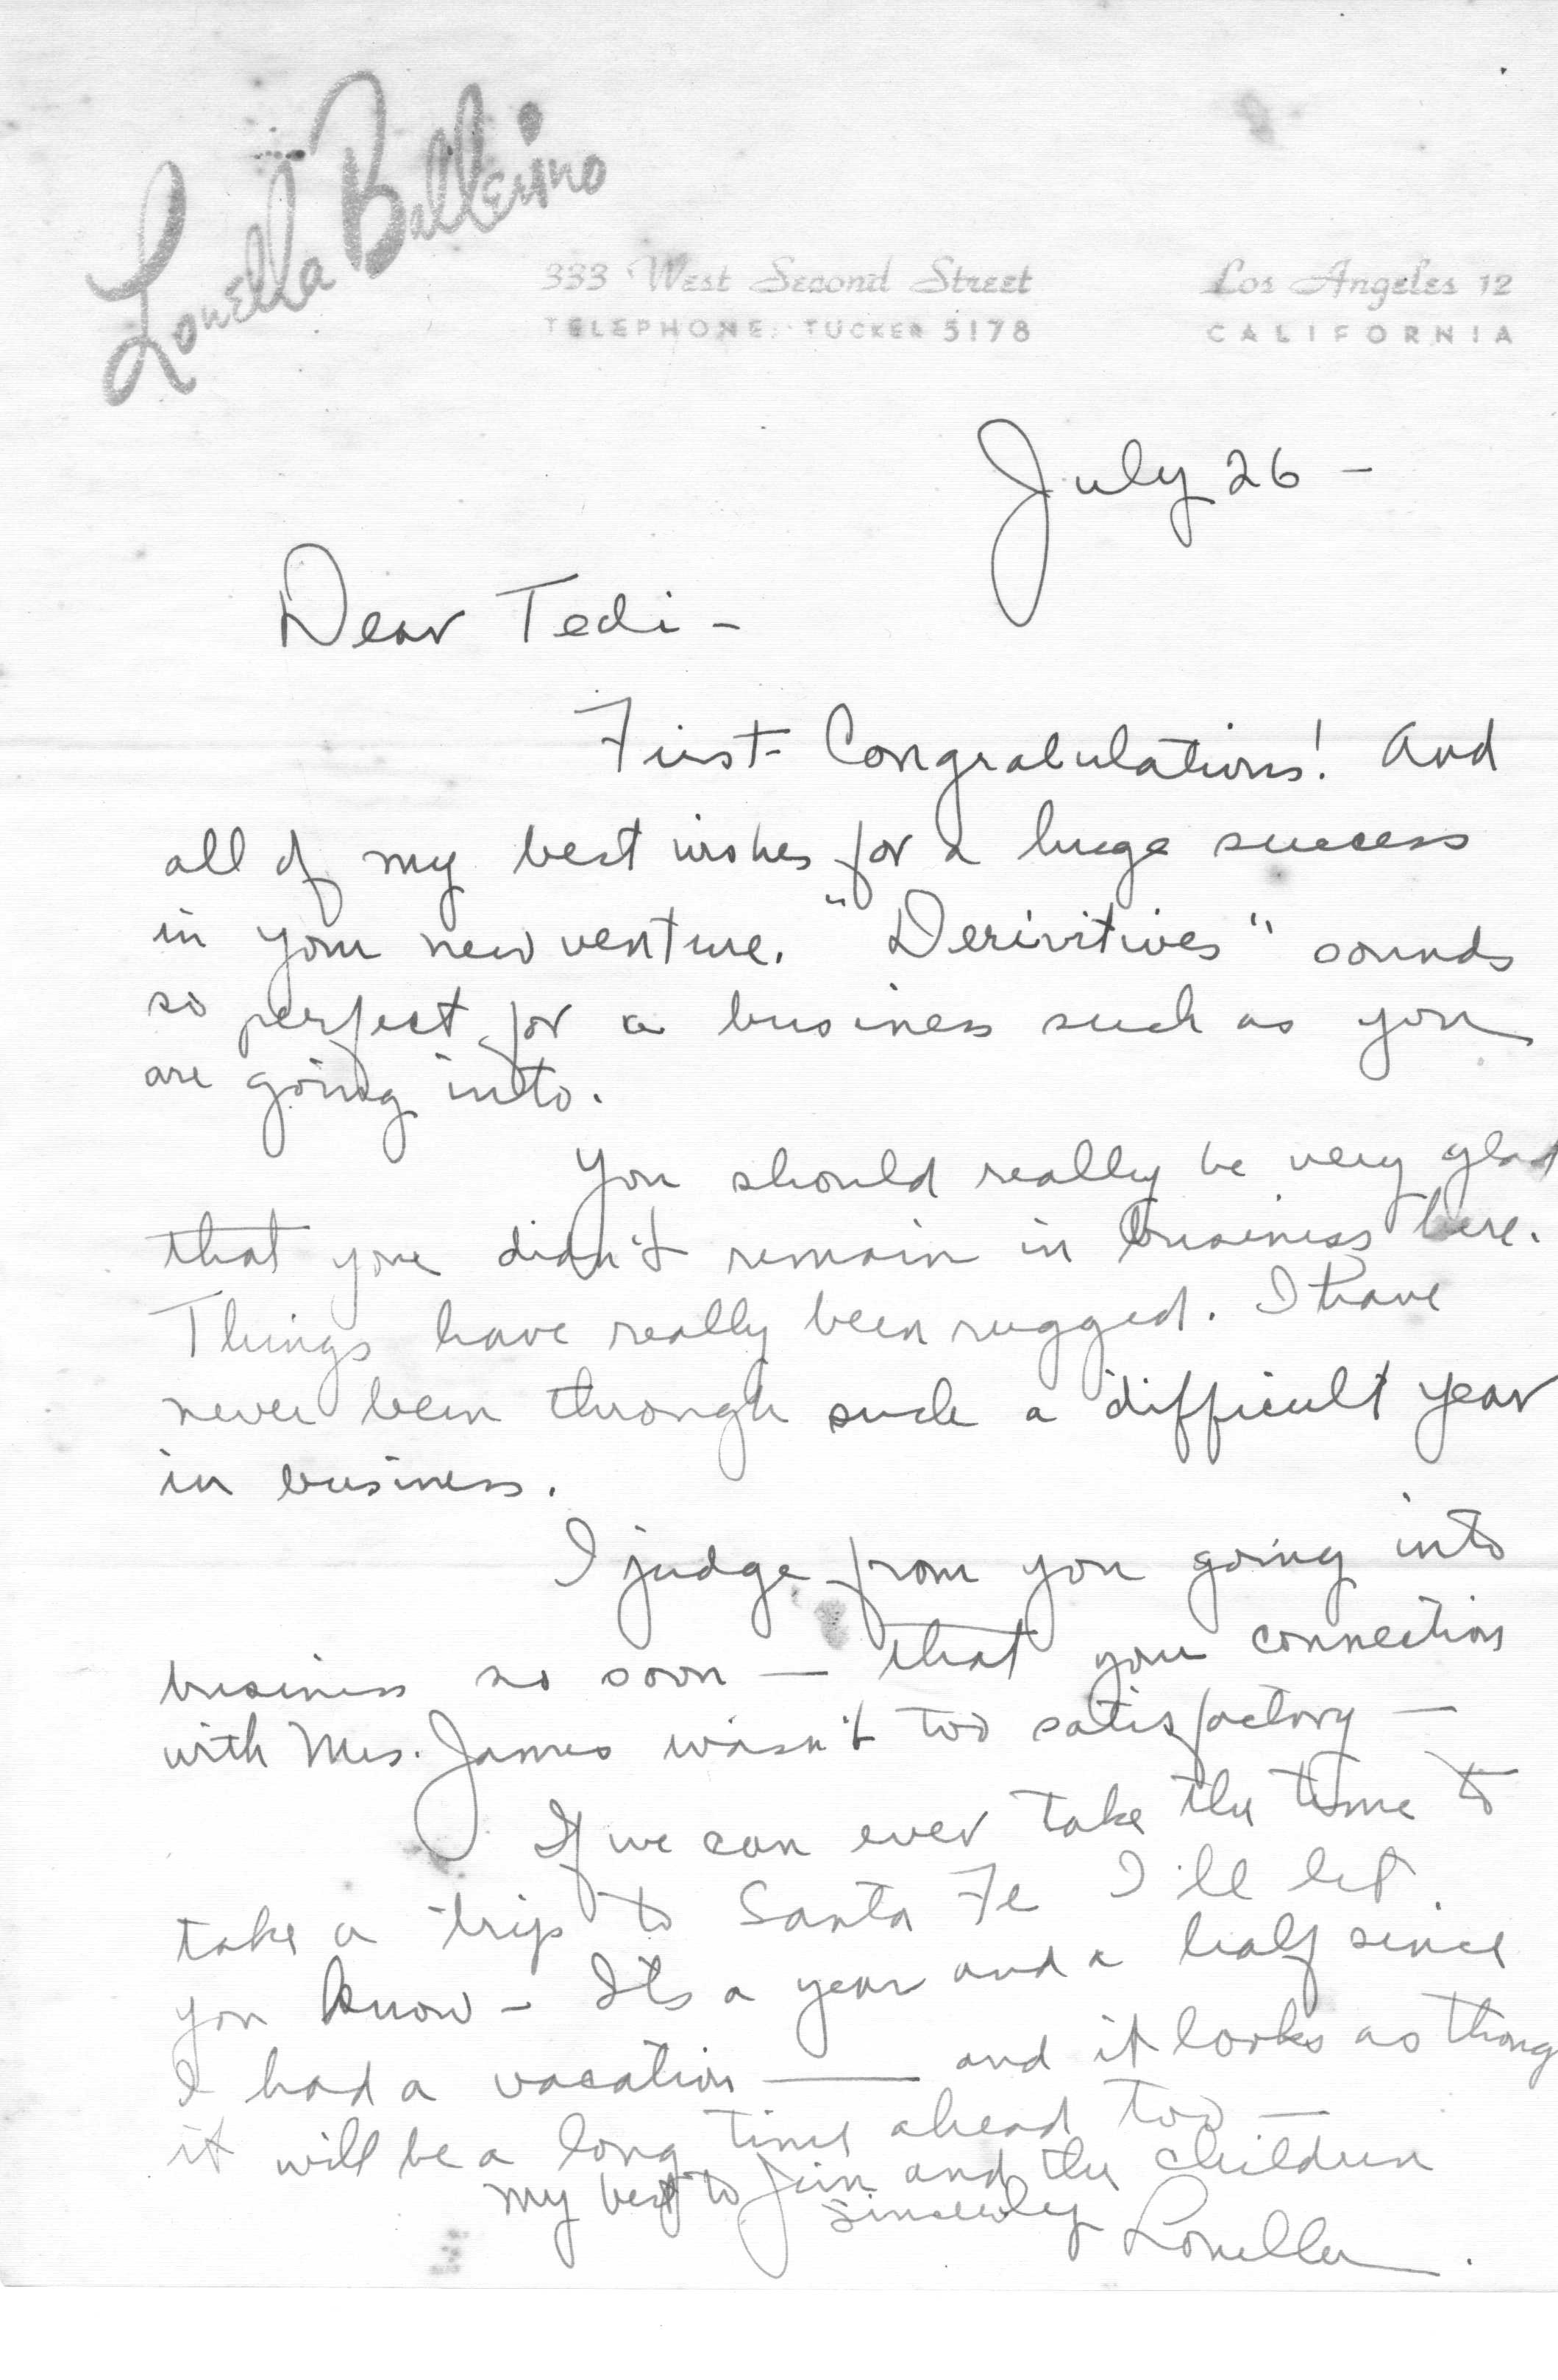 Louella Ballerino
333 West Second Street Los Angeles 12
TELEPHONE: TUCKER 5178 CALIFORNIA
July 26 –
Dear Tedi –
First – Congratulations! And
all of my best wishes for a huge success
in your new venture. "Derivitives" sounds
so perfect for a business such as you
are going into.
You should really be very glad
that you didn't remain in business here.
Things have really been rugged. I have
never been through such a difficult year
in business.
I judge from you going into
business so soon — that your connections
with Mrs. James wasn't too satisfactory —
If we can ever take the time to
take a trip to Santa Fe I'll let
you know – Its a year and a half since
I had a vacation —— and it looks as thoug
it will be a long time ahead too —
my best to Jim and the children
Sincerely Louella